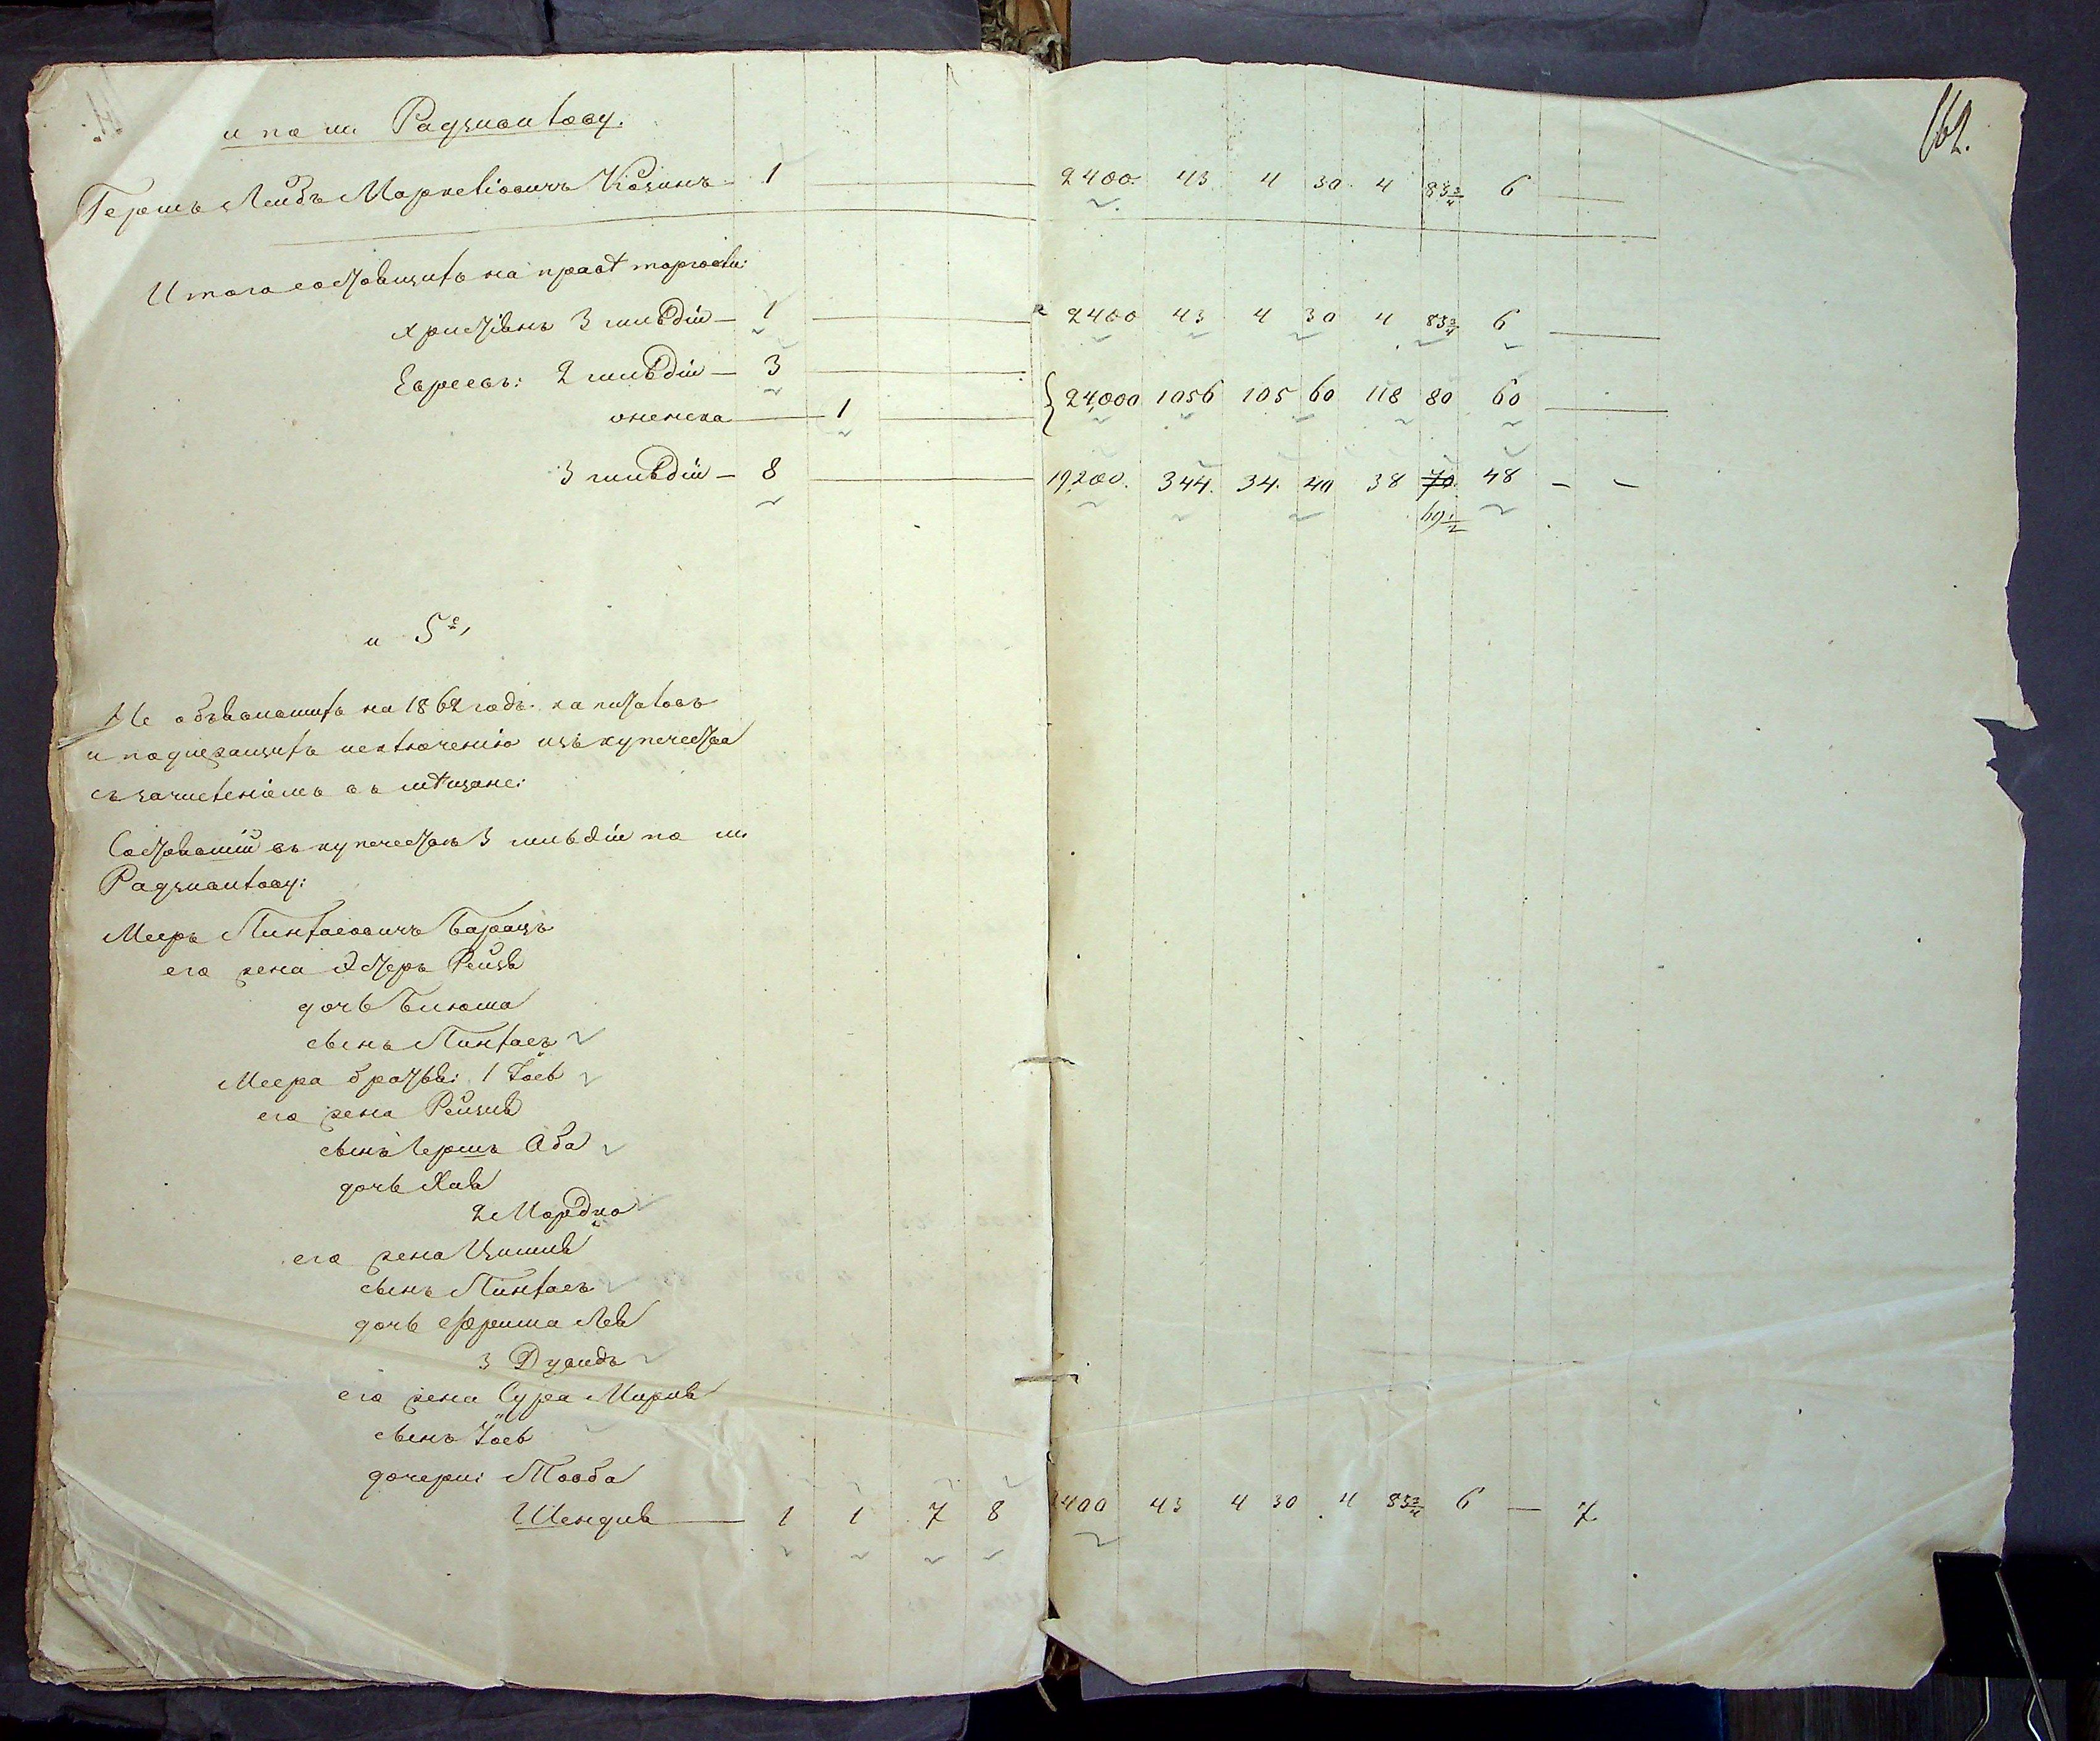 162.
и по м. Радзивилову.
Гершъ Лейбъ Маркевіовичъ Козинъ — 1 — 2400. 43 4 30. 4 83¾ 6 —
Итого состоящихъ на правѣ торговли:
христіянъ 3 гильдіи — 1 — 2400 43 4 30 4 83¾ 6 —
Евреевъ: 2 гильдіи — 3 — 24,000 1056 105 60 118 80 60 —
онежска — 1 —
3 гильдіи — 8 — 19,200. 344. 34. 40 38 70 48 — —
69½
и 5е,
Не объявившихъ на 1862 годъ капиталовъ
и подлежащихъ исключенію изъ купечества
съ зачисленіемъ въ мѣщане:
Состоявшій въ купечествѣ 3 гильдіи по м.
Радзивилову:
Мееръ Пинхасовичъ Барацъ
его жена Эстеръ Рейзя
дочь Блюма
сынъ Пинхасъ
Меера братья: 1 Іось
его жена Рейзля
сынъ Гершъ Аба
дочь Хая
2 Мордко
его жена Цишля
сынъ Пинхасъ
дочь Фрима Лея
3 Дувидъ
его жена Сура Мирля
сынъ Іось
дочери: Товба
Шендля — 1 1 7 8 2400 43 4 30 4 83¾ 6 — 7